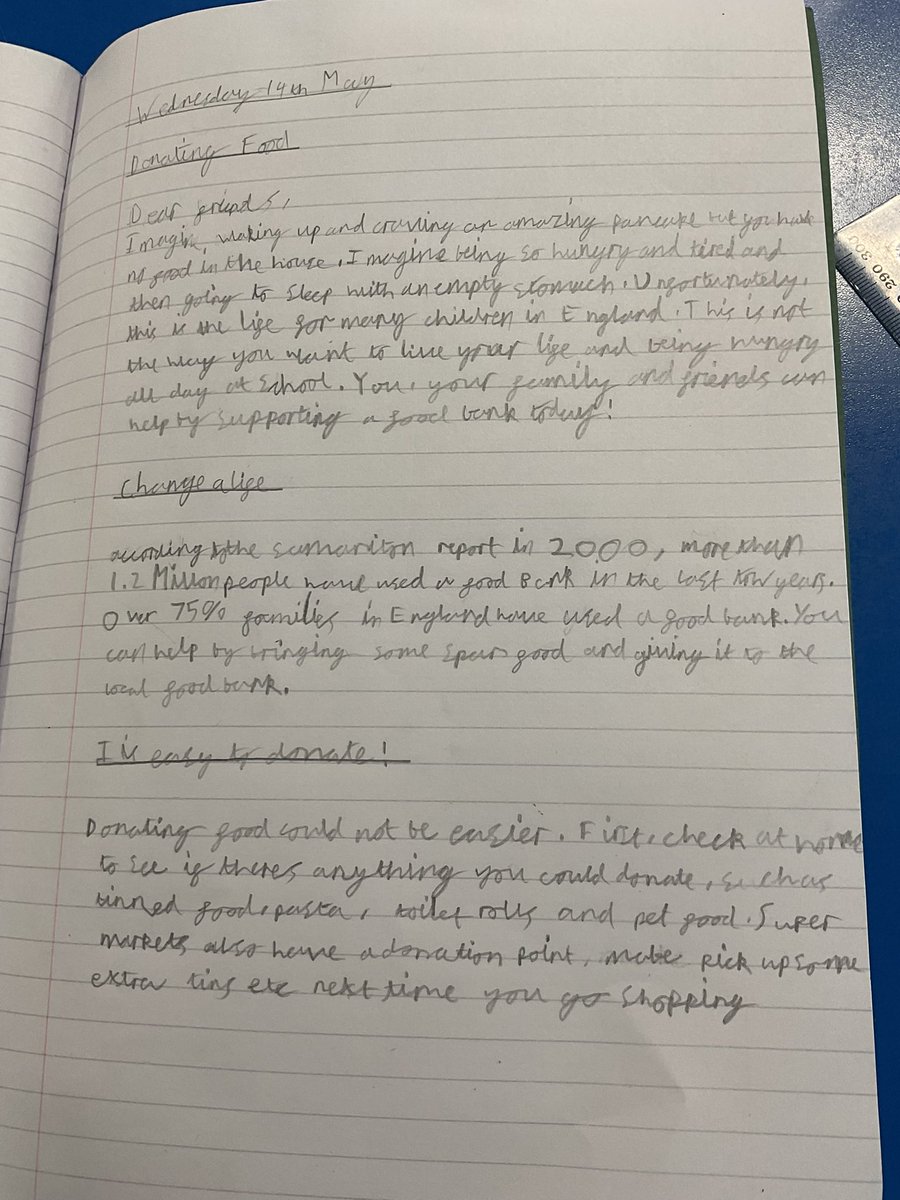 Wednesday 14th May
Donating Food
Dear friends,
Imagin waking up and craving an amazing pancake but you have
no food in the house. Imagine being so hungry and tired and
then going to sleep with an empty stomach. Unfortunately,
this is the life for many children in England. This is not
the way you want to live your life and being hungry
all day at School. You, your family and friends can
help by supporting a food bank today!
Change a life
according to the samariton report in 2000, more than
1.2 Millon people have used a food Bank in the last years.
Over 75% families in England have used a food bank. You
can help by bringing some spare food and giving it to the
local food bank.
I is easy to donate!
Donating food could not be easier. First, check at home
to see if theres anything you could donate, such as
tinned food, pasta, toilet rolls and pet food. Super
markets also have a donation point, pick up some
extra tins etc next time you go shopping
290 300